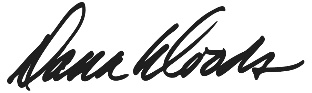 Dana Woods